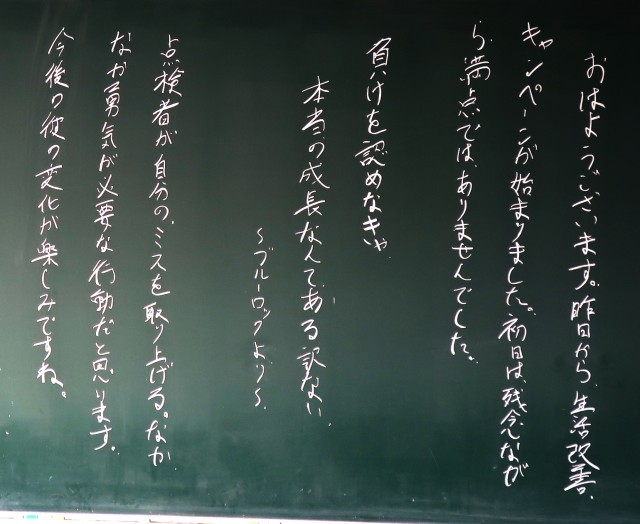 おはようございます。昨日から、生活改善
キャンペーンが始まりました。初日は、残念なが
ら、満点ではありませんでした。
負けを認めなきゃ
本当の成長なんてある訳ない
～ブルーロックより～
点検者が自分の、ミスを取り上げる。なか
なか勇気が必要な行動だと思います。
今後の彼の変化が楽しみですね。